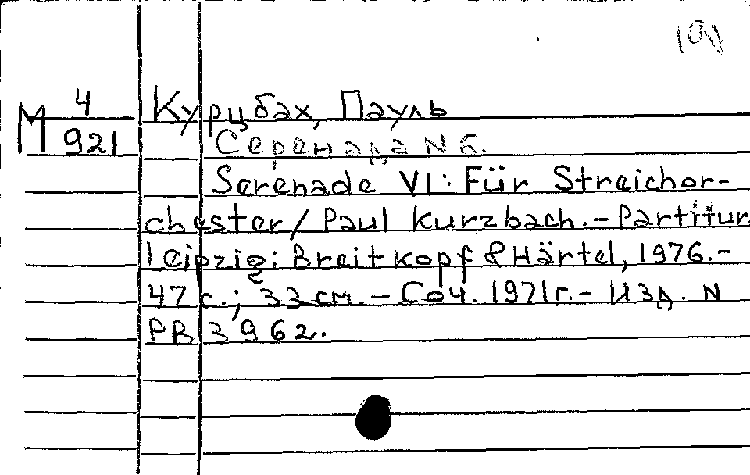 М 4/921
Курцбах, Пауль
Серенада N 6.
Serenade VI: Für Streichor-
chester / Paul Kurzbach. - Partitur
Leipzig: Breitkopf & Härtel, 1976. -
47 с.; 33 см. - Соч. 1971г. - Изд. N
PB 3962.